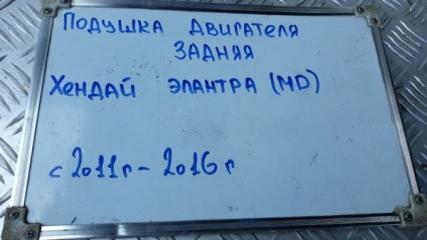 Подушка двигателя
задняя
Хендай элантра (MD)
с 2011г - 2016г